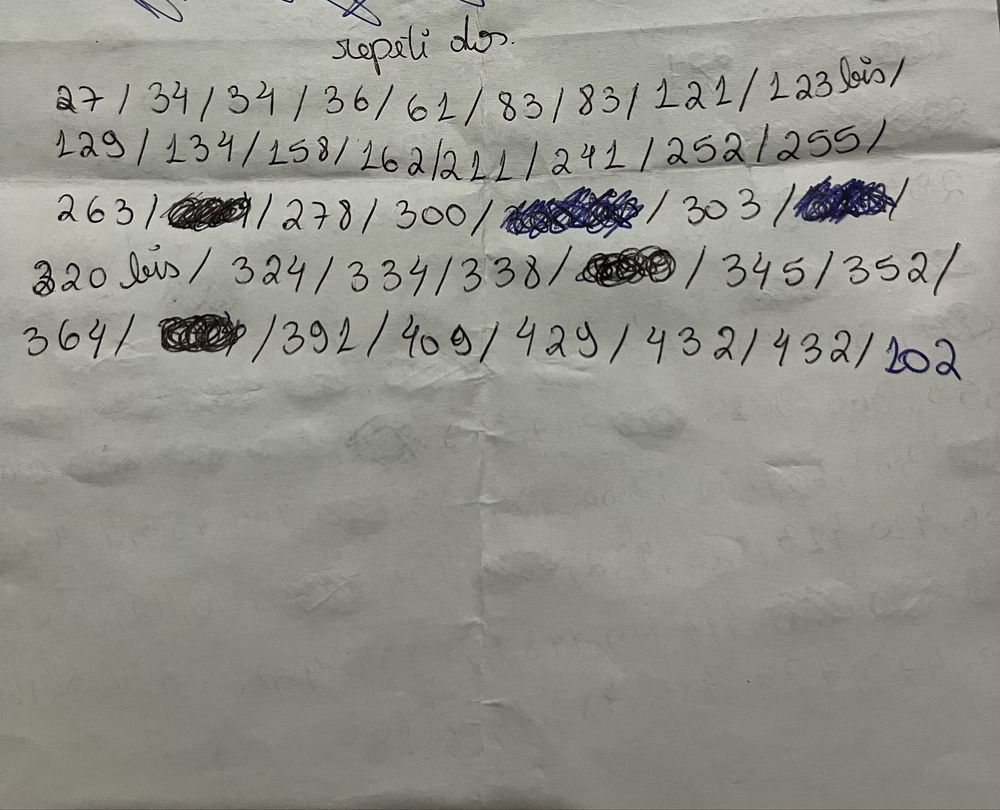 repeti dos.
27 / 34 / 34 / 36 / 61 / 83 / 83 / 121 / 123 bis /
129 / 134 / 158 / 162 / 211 / 241 / 252 / 255 /
263 / / 278 / 300 / / 303 / /
320 bis / 324 / 334 / 338 / / 345 / 352 /
364 / / 391 / 409 / 429 / 432 / 432 / 102